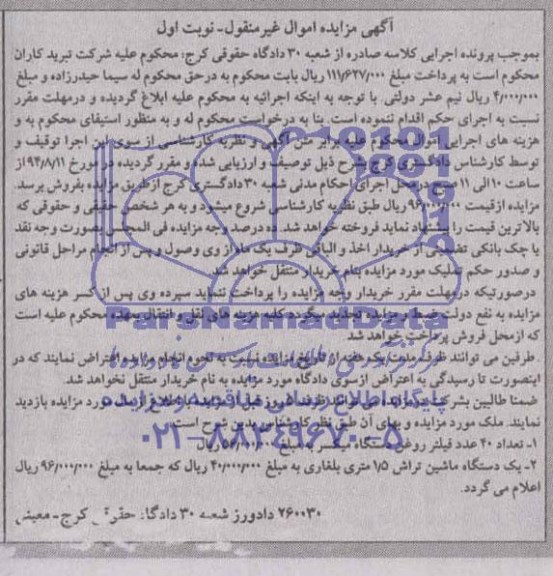 آگهی مزایده اموال غیرمنقول- نوبت اول
بموجب پرونده اجرایی کلاسه صادره از شعبه ۳۰ دادگاه حقوقی کرج؛ محکوم علیه شرکت تبرید کاران
محکوم است به پرداخت مبلغ ۱۱۱/۶۲۷/۰۰۰ ریال بابت محکوم به درحق محکوم له سیما حیدرزاده و مبلغ
۴/۰۰۰/۰۰۰ ریال نیم عشر دولتی. با توجه به اینکه اجرائیه به محکوم علیه ابلاغ گردیده و درمهلت مقرر
نسبت به اجرای حکم اقدام ننموده است. بنا به درخواست محکوم له و به منظور استیفای محکوم به و
هزینه های اجرایی اموال محکوم علیه برابر متن آگهی و نظریه کارشناسی از سوی این اجرا توقیف و
توسط کارشناس دادگستری کرج بشرح ذیل توصیف و ارزیابی شده و مقرر گردید در مورخ ۹۴/۸/۱۱ از
ساعت ۱۰ الی ۱۱ صبح درمحل اجرای احکام مدنی شعبه ۳۰ دادگستری کرج ازطریق مزایده بفروش برسد.
مزایده ازقیمت ۹۶/۰۰۰/۰۰۰ ریال طبق نظریه کارشناسی شروع میشود و به هر شخص حقیقی و حقوقی که
بالاترین قیمت را پیشنهاد نماید فروخته خواهد شد. ده درصد وجه مزایده فی المجلس بصورت وجه نقد
یا چک بانکی تضمینی از خریدار اخذ و الباقی ظرف یک ماه از وی وصول و پس از انجام مراحل قانونی
و صدور حکم تملیک مورد مزایده بنام خریدار منتقل خواهد شد.
درصورتیکه درمهلت مقرر خریدار وجه مزایده را پرداخت ننماید سپرده وی پس از کسر هزینه های
مزایده به نفع دولت ضبط و مزایده تجدید میگردد کلیه هزینه های نقل وانتقال بعهده محکوم علیه است
که ازمحل فروش پرداخت خواهد شد.
طرفین می توانند ظرف مدت یک هفته از تاریخ مزایده نسبت به نحوه انجام مزایده اعتراض نمایند که در
اینصورت تا رسیدگی به اعتراض ازسوی دادگاه مورد مزایده به نام خریدار منتقل نخواهد شد.
ضمنا طالبین بشرکت در مزایده می توانند ظرف پنج روز قبل از مزایده با اطلاع از مورد مزایده بازدید
نمایند. ملک مورد مزایده و بهای آن طبق نظر کارشناس بدین شرح است.
۱- تعداد ۴۰ عدد فیلتر روغن دستگاه میکسر به مبلغ ریال
۲- یک دستگاه ماشین تراش ۱/۵ متری بلغاری به مبلغ ۴۰/۰۰۰/۰۰۰ ریال که جمعا به مبلغ ۹۶/۰۰۰/۰۰۰ ریال
اعلام می گردد.
۲۶۰۰۳۰ دادورز شعبه ۳۰ دادگاه حقوقی کرج- معینی
ParsNamadData
پایگاه اطلاع رسانی مناقصه و مزایده
۰۲۱-۸۸۳۴۹۶۷۰-۵